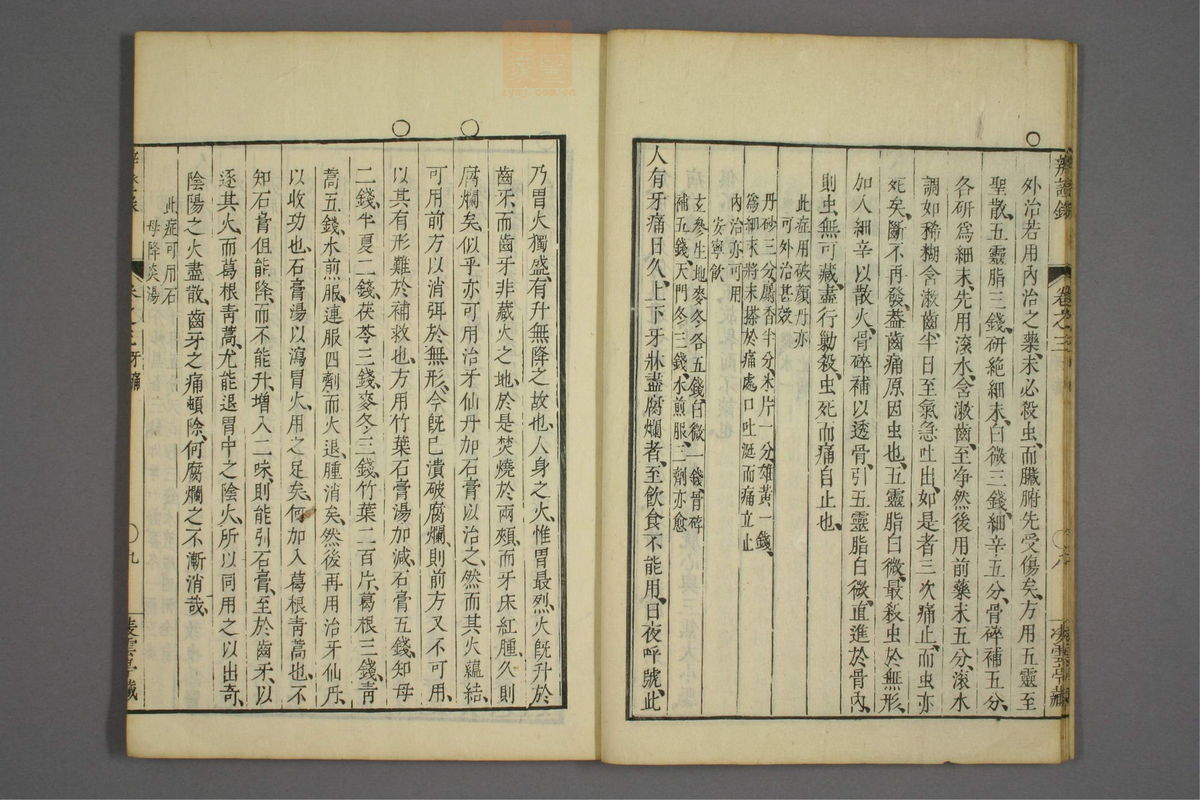 辨證錄 卷之三 凌雲亭藏
外治若用內治之藥未必殺虫而臟腑先受傷矣方用五靈至
聖散五靈脂三錢研絶細末白薇三錢細辛五分骨碎補五分
各研為細末先用滾水含漱齒至净然後用前藥末五分滾水
調如稀糊含漱齒半日至氣急吐出如是者三次痛止而虫亦
死矣斷不再發葢齒痛原因虫也五靈脂白薇最殺虫於無形
加入細辛以散火骨碎補以透骨引五靈脂白薇直進於骨內
則虫無可藏盡行勦殺虫死而痛自止也
此症用破顏丹亦
可外治甚效
丹砂三分麝香半分氷片一分雄黃一錢
為細末將末搽於痛處口吐涎而痛立止
內治亦可用
安寧飲
玄參生地麥冬各五錢白薇一錢骨碎
補五錢天門冬三錢水煎服三劑亦愈
人有牙痛日久上下牙牀盡腐爛者至飲食不能用日夜呼號此
乃胃火獨盛有升無降之故也人身之火惟胃最烈火旣升於
齒牙而齒牙非藏火之地於是焚燒於兩頰而牙床紅腫久則
腐爛矣似乎亦可用治牙仙丹加石膏以治之然而其火蘊結
可用前方以消弭於無形今旣已潰破腐爛則前方又不可用
以其有形難於補救也方用竹葉石膏湯加減石膏五錢知母
二錢半夏二錢茯苓三錢麥冬三錢竹葉二百片葛根三錢靑
蒿五錢水煎服連服四劑而火退腫消矣然後再用治牙仙丹
以收功也石膏湯以瀉胃火用之足矣何加入葛根靑蒿也不
知石膏但能降而不能升增入二味則能引石膏至於齒牙以
逐其火而葛根靑蒿尤能退胃中之陰火所以同用之以出奇
陰陽之火盡散齒牙之痛頓除何腐爛之不漸消哉
此症可用石
母降炎湯
牙痛 九 凌雲亭藏